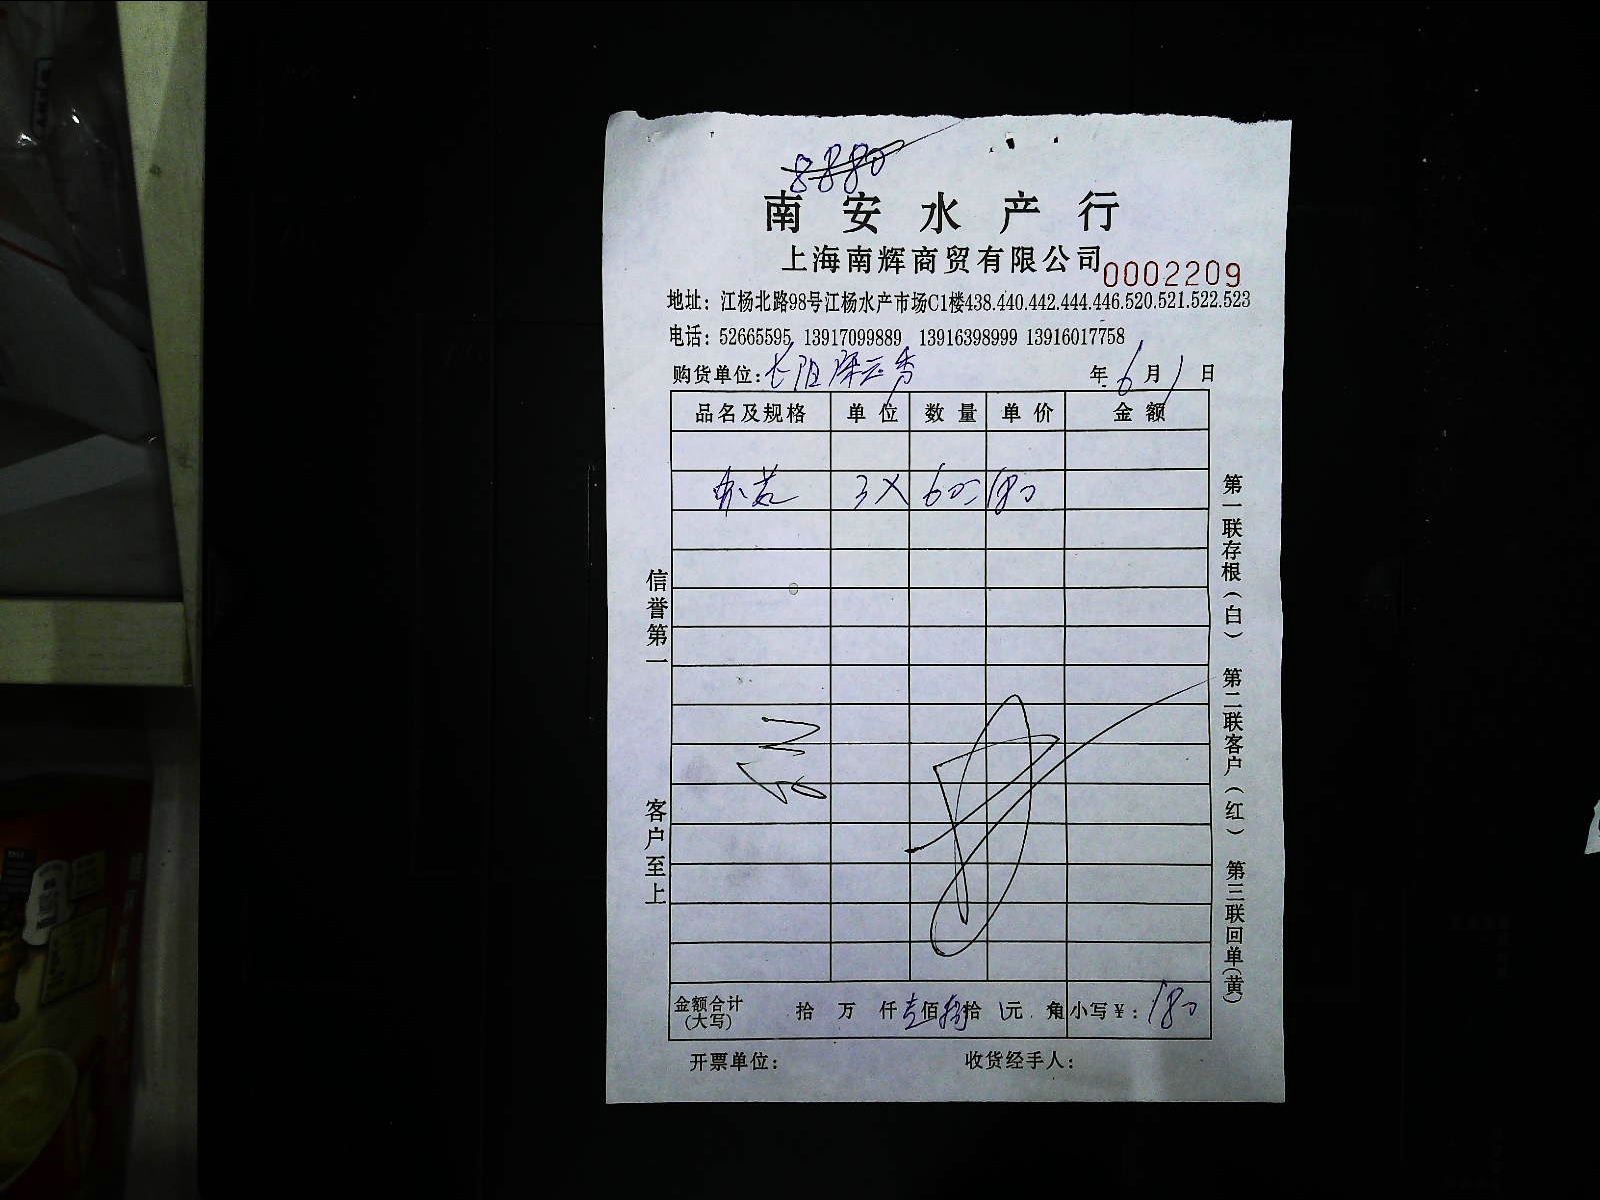 8880
南安水产行
上海南辉商贸有限公司 0002209
地址：江杨北路98号江杨水产市场C1楼438.440.442.444.446.520.521.522.523
电话：52665595 13917099889 13916398999 13916017758
购货单位： 年6月1日
品名及规格 单位 数量 单价 金额
3X 60 180
信誉第一
客户至上
第一联存根(白) 第二联客户(红) 第三联回单(黄)
金额合计(大写) 拾 万 仟壹佰捌拾 元 角 小写￥：180
开票单位： 收货经手人：